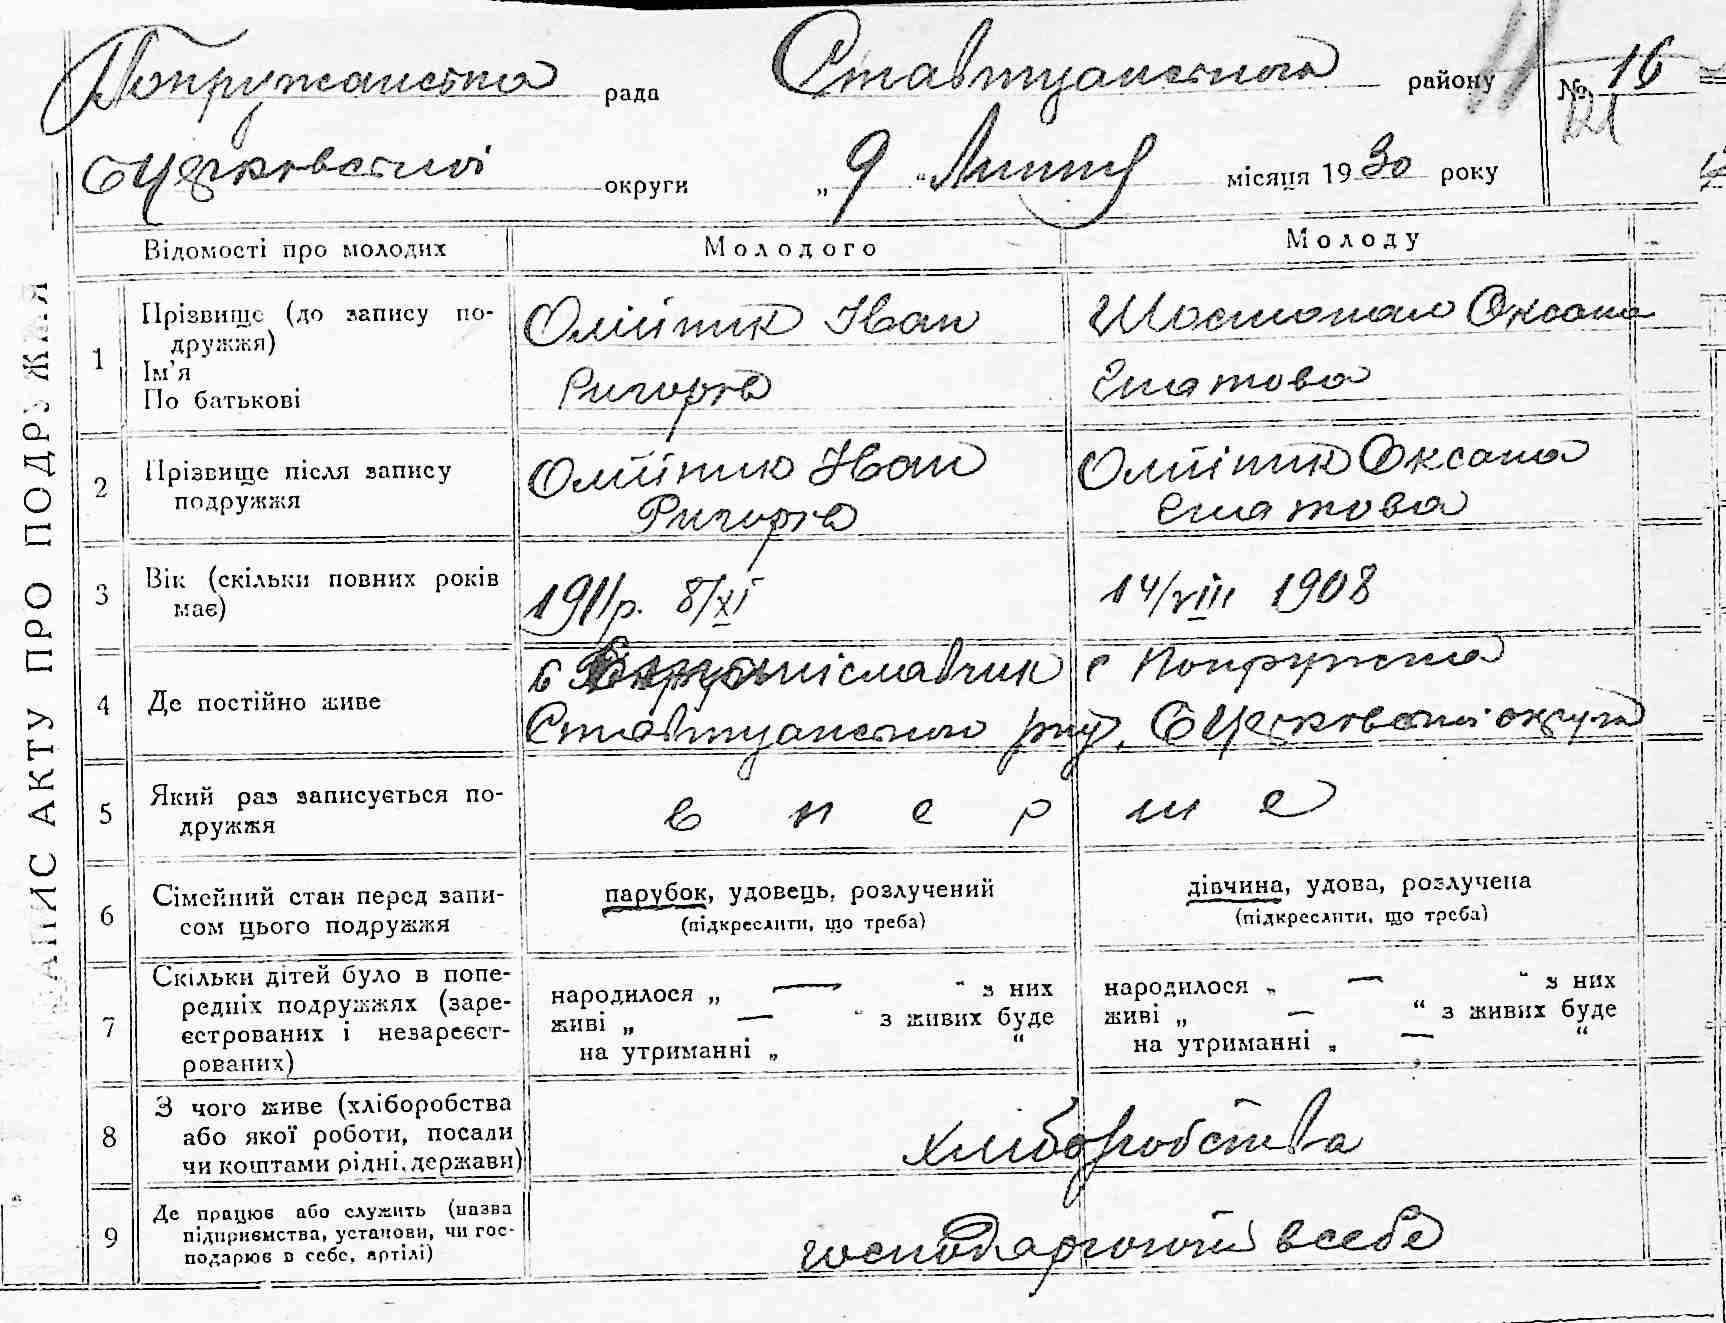 Попружанська рада Ставищанського району № 16
121
БЦерковської округи „9“ Липня місяця 1930 року
ЗАПИС АКТУ ПРО ПОДРУЖЖЯ
Відомості про молодих Молодого Молоду
1 Прізвище (до запису подружжя) Олійник Іван Шостопало Оксана
Ім'я
По батькові Ригоров Гнатова
2 Прізвище після запису Олійник Іван Олійник Оксана
подружжя Ригоров Гнатова
3 Вік (скільки повних років має) 1911 р. 8/XI 14/VIII 1908
4 Де постійно живе с ніславчик с Попружна
Ставищанського р-ну, БЦерковської округи
5 Який раз записується подружжя вперше
6 Сімейний стан перед запи- парубок, удовець, розлучений дівчина, удова, розлучена
сом цього подружжя (підкреслити, що треба) (підкреслити, що треба)
7 Скільки дітей було в попе- народилося „ — “ з них народилося „ — “ з них
редніх подружжях (заре- живі „ — “ з живих буде живі „ — “ з живих буде
єстрованих і незареєст- на утриманні „ “ на утриманні „ — “
рованих)
8 З чого живе (хліборобства
або якої роботи, посади хліборобства
чи коштами рідні, держави)
9 Де працює або служить (назва
підприємства, установи, чи гос- господарюють в себе
подарює в себе, артілі)